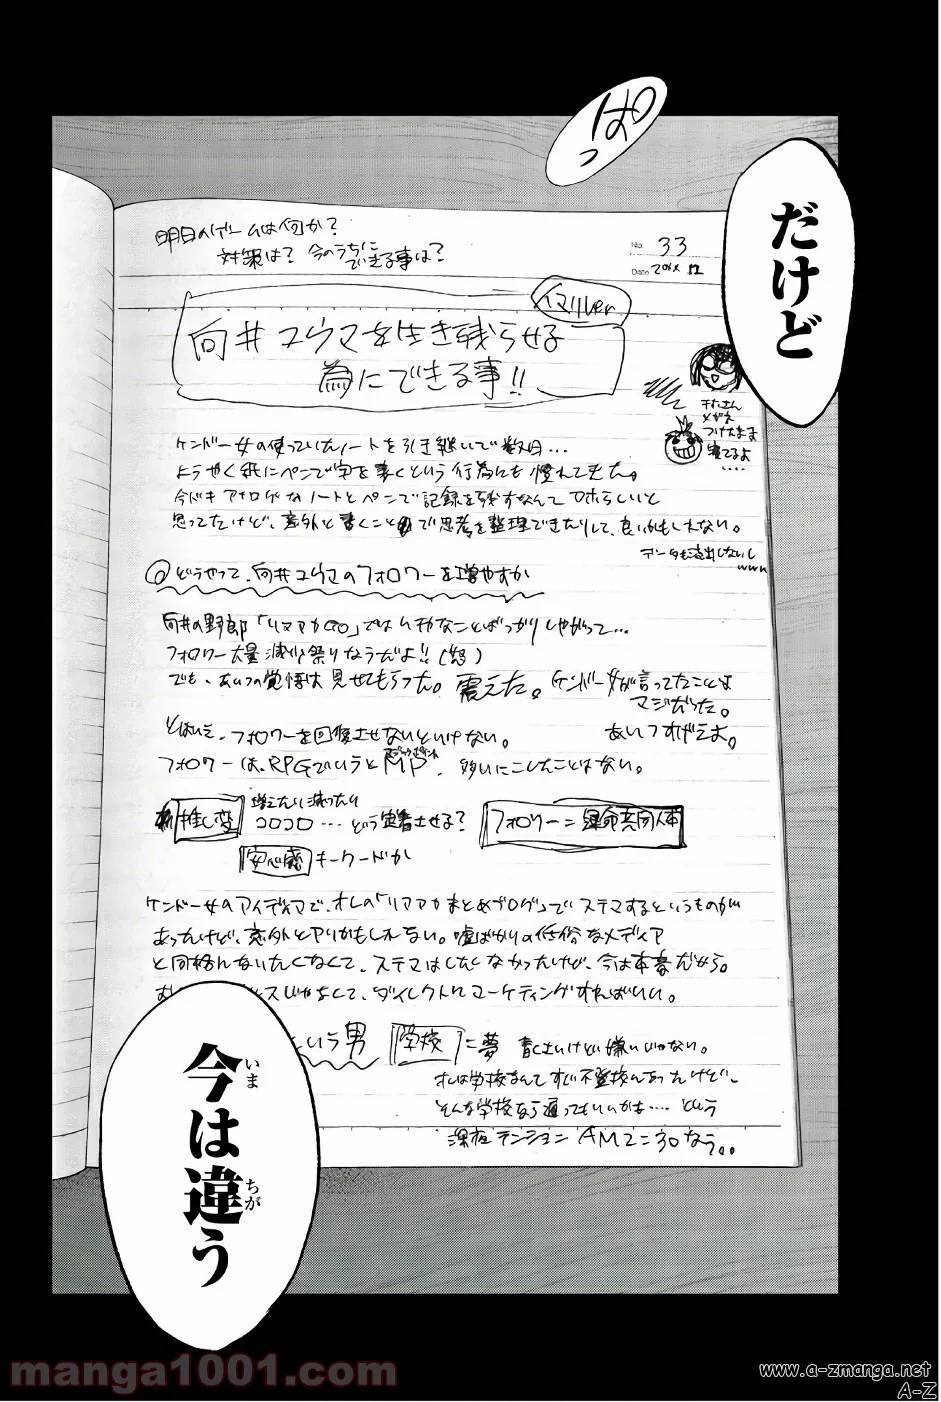 だけど
ぱっ
明日のゲームは何か？
対策は？ 今のうちに
できる事は？
No. 33
Date
イマリver
向井ユウマを生き残らせる
為にできる事!!
オレさん
メガネ
つけたまま
寝てるよ
....
ケンドー女の使っていたノートを引き継いで数日…
ようやく紙にペンで字を書くという行為にも慣れてきた。
今ドキアナログなノートとペンで記録を残すなんてアホらしいと
思ってたけど、意外と書くことで思考を整理できたりして、良いかもしれない。
データも流出しないし
www
◎どうやって、向井ユウマのフォロワーを増やすか
向井の野郎「リアアカGO」では ばっかりしやがって…
フォロワー大量減少祭りなうだよ!!(怒)
でも、あいつの覚悟は見せてもらった。震えた。ケンドー女が言ってたことは
マジだった。
あいつすげぇよ。
とはいえ、フォロワーを回復させないといけない。
フォロワーは、RPGでいうとMP、多いにこしたことはない。
推し変
増えたり減ったり
コロコロ…どう定着させる？
フォロワー＝運命共同体
安心感 キーワードか
ケンドー女のアイディアで、オレの「リアアカまとめブログ」でステマするというものが
あったけど、意外とアリかもしれない。嘘ばかりの低俗なメディア
と同格になりたくなくて、ステマはしたくなかったけど、今は本音だから。
じゃなくて、ダイレクトにマーケティングすればいい。
という男 学校に夢 青くさいけど嫌いじゃない。
オレは学校なんてすぐ不登校んなったけど、
そんな学校なら通ってもいいかも…. という
深夜テンション AM2:30なう。。
今は違う
いま
ちが
manga1001.com
www.a-zmanga.net
A-Z